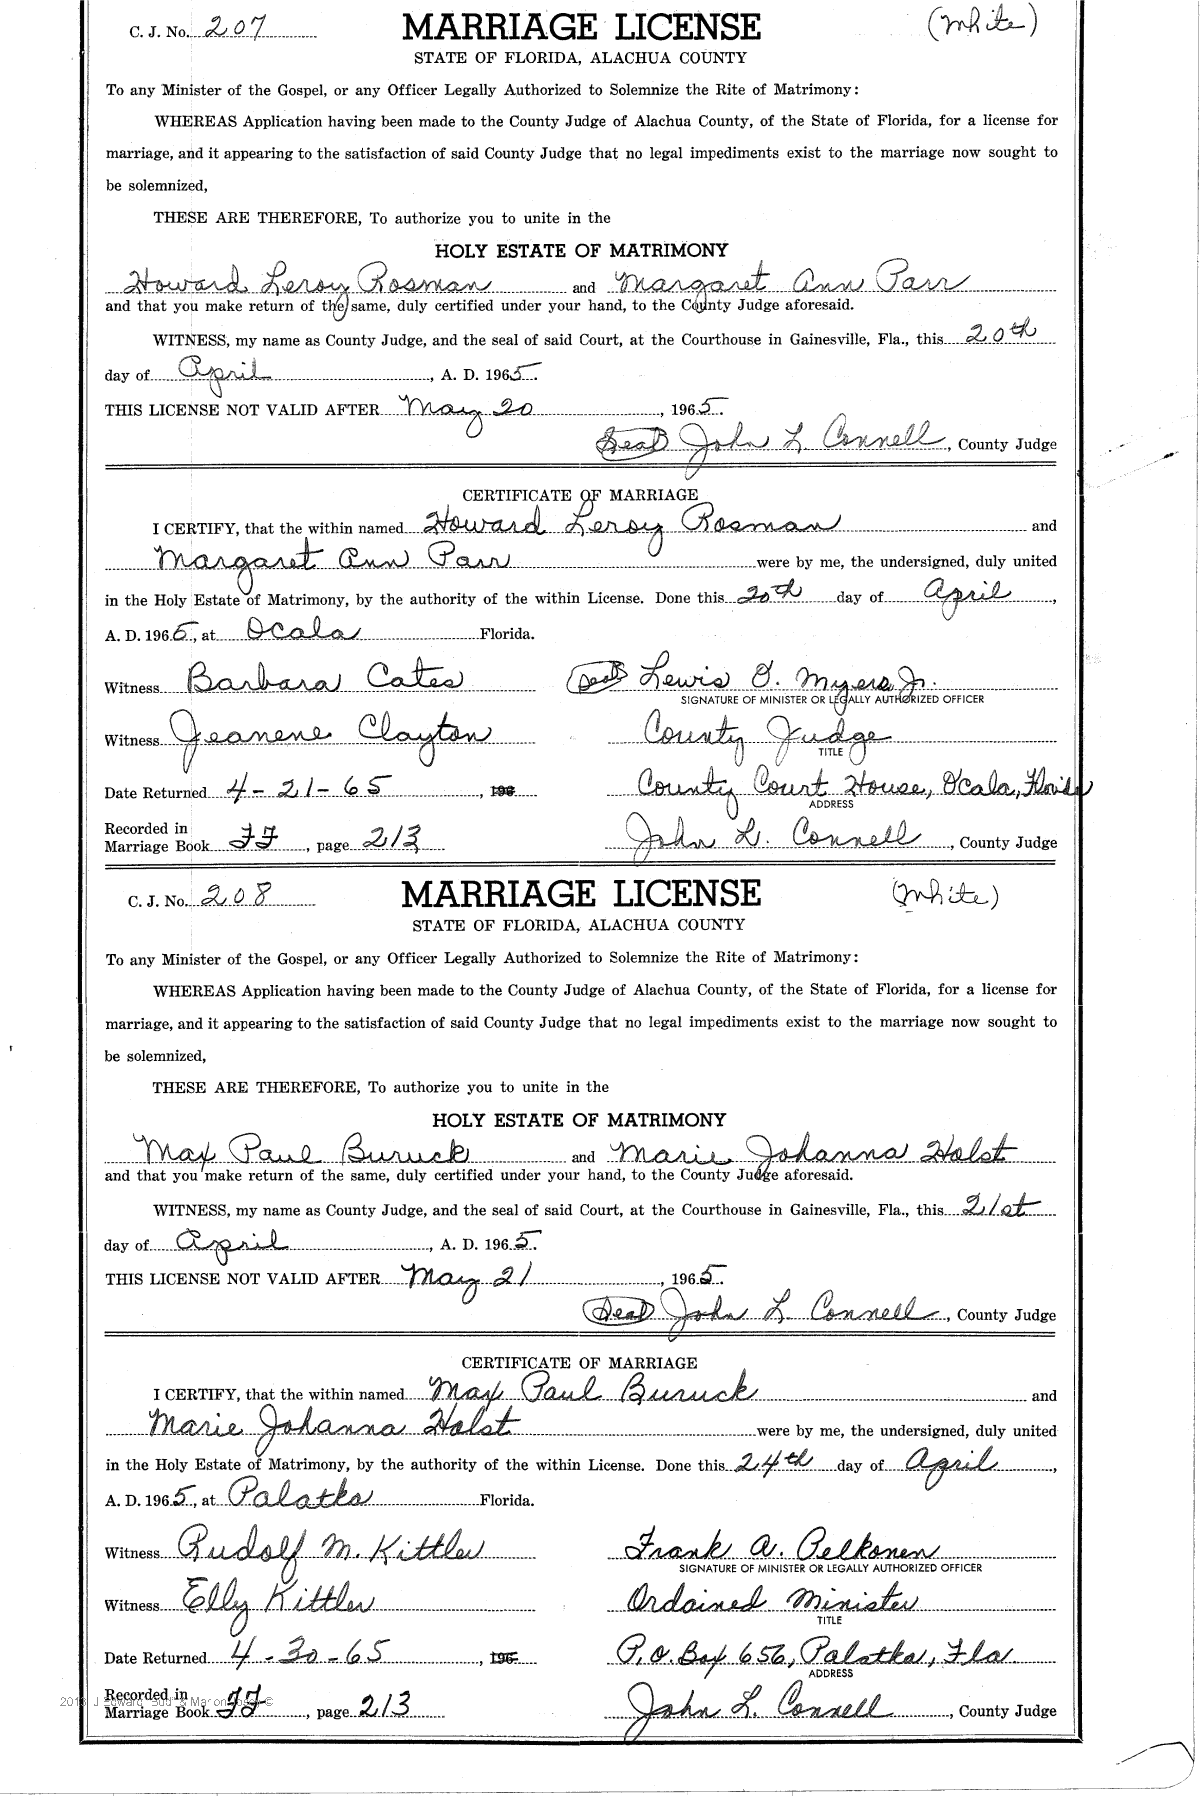 C. J. No. 207 MARRIAGE LICENSE (White)
STATE OF FLORIDA, ALACHUA COUNTY
To any Minister of the Gospel, or any Officer Legally Authorized to Solemnize the Rite of Matrimony:
WHEREAS Application having been made to the County Judge of Alachua County, of the State of Florida, for a license for
marriage, and it appearing to the satisfaction of said County Judge that no legal impediments exist to the marriage now sought to
be solemnized,
THESE ARE THEREFORE, To authorize you to unite in the
HOLY ESTATE OF MATRIMONY
Howard Leroy Rosman and Margaret Ann Parr
and that you make return of the same, duly certified under your hand, to the County Judge aforesaid.
WITNESS, my name as County Judge, and the seal of said Court, at the Courthouse in Gainesville, Fla., this 20th
day of April, A. D. 1965.
THIS LICENSE NOT VALID AFTER May 20, 1965.
(Seal) John L Connell, County Judge
CERTIFICATE OF MARRIAGE
I CERTIFY, that the within named Howard Leroy Rosman and
Margaret Ann Parr were by me, the undersigned, duly united
in the Holy Estate of Matrimony, by the authority of the within License. Done this 20th day of April,
A. D. 1965, at Ocala Florida.
Witness Barbara Cates (Seal) Lewis O. Myers Jr.
SIGNATURE OF MINISTER OR LEGALLY AUTHORIZED OFFICER
Witness Jeanene Clayton County Judge
TITLE
Date Returned 4-21-65, 196 County Court House, Ocala, Florida
ADDRESS
Recorded in
Marriage Book JJ, page 213 John L. Connell, County Judge
C. J. No. 208 MARRIAGE LICENSE (White)
STATE OF FLORIDA, ALACHUA COUNTY
To any Minister of the Gospel, or any Officer Legally Authorized to Solemnize the Rite of Matrimony:
WHEREAS Application having been made to the County Judge of Alachua County, of the State of Florida, for a license for
marriage, and it appearing to the satisfaction of said County Judge that no legal impediments exist to the marriage now sought to
be solemnized,
THESE ARE THEREFORE, To authorize you to unite in the
HOLY ESTATE OF MATRIMONY
Max Paul Buruck and Marie Johanna Holst
and that you make return of the same, duly certified under your hand, to the County Judge aforesaid.
WITNESS, my name as County Judge, and the seal of said Court, at the Courthouse in Gainesville, Fla., this 21st
day of April, A. D. 1965.
THIS LICENSE NOT VALID AFTER May 21, 1965.
(Seal) John L. Connell, County Judge
CERTIFICATE OF MARRIAGE
I CERTIFY, that the within named Max Paul Buruck and
Marie Johanna Holst were by me, the undersigned, duly united
in the Holy Estate of Matrimony, by the authority of the within License. Done this 24th day of April,
A. D. 1965, at Palatka Florida.
Witness Rudolf M. Kittler Frank A. Pelkonen
SIGNATURE OF MINISTER OR LEGALLY AUTHORIZED OFFICER
Witness Elly Kittler Ordained Minister
TITLE
Date Returned 4-30-65, 196 P.O. Box 656, Palatka, Fla
ADDRESS
Recorded in
Marriage Book JJ, page 213 John L. Connell, County Judge